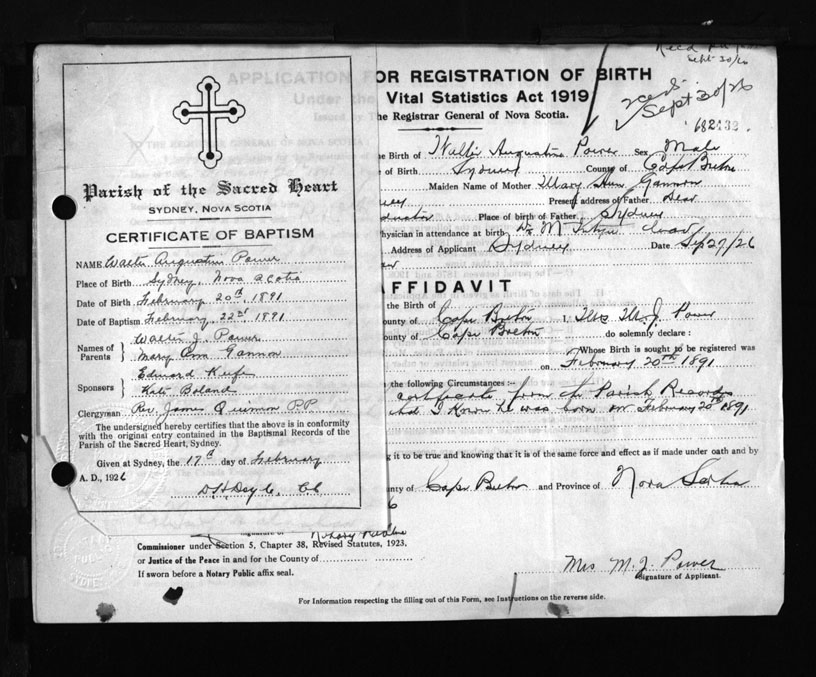 Parish of the Sacred Heart
SYDNEY, NOVA SCOTIA
CERTIFICATE OF BAPTISM
NAME Walter Augustin Power
Place of Birth Sydney, Nova Scotia
Date of Birth February 20th, 1891
Date of Baptism February 22nd 1891
Names of Parents
Walter J. Power
Mary Ann Gannon
Sponsors
Edward
Kate Boland
Clergyman Rev. James Quinan PP
The undersigned hereby certifies that the above is in conformity
with the original entry contained in the Baptismal Records of the
Parish of the Sacred Heart, Sydney.
Given at Sydney, the 17th day of February
A. D., 1926
APPLICATION FOR REGISTRATION OF BIRTH
Under the Vital Statistics Act 1919
the Registrar General of Nova Scotia.
Sept 30/26
Sept 30/26
he Birth of Walter Augustine Power Sex Male
of Birth Sydney County of Cape Breton
Maiden Name of Mother Mary Ann Gannon
Present address of Father Dead
Place of birth of Father Sydney
hysician in attendance at birth Dr. M
Address of Applicant Sydney Date Sep 27/26
AFFIDAVIT
the Birth of
ounty of Cape Breton I, Mrs M. J. Power
ounty of Cape Breton do solemnly declare :
Whose Birth is sought to be registered was
on February 20th 1891
the following Circumstances :-
certificate from the Parish Records
that I know he was born on February 20th 1891
g it to be true and knowing that it is of the same force and effect as if made under oath and by
unty of Cape Breton and Province of Nova Scotia
Signature of
Commissioner under Section 5, Chapter 38, Revised Statutes, 1923.
or Justice of the Peace in and for the County of
If sworn before a Notary Public affix seal.
Mrs M. J. Power
Signature of Applicant.
For Information respecting the filling out of this Form, see Instructions on the reverse side.